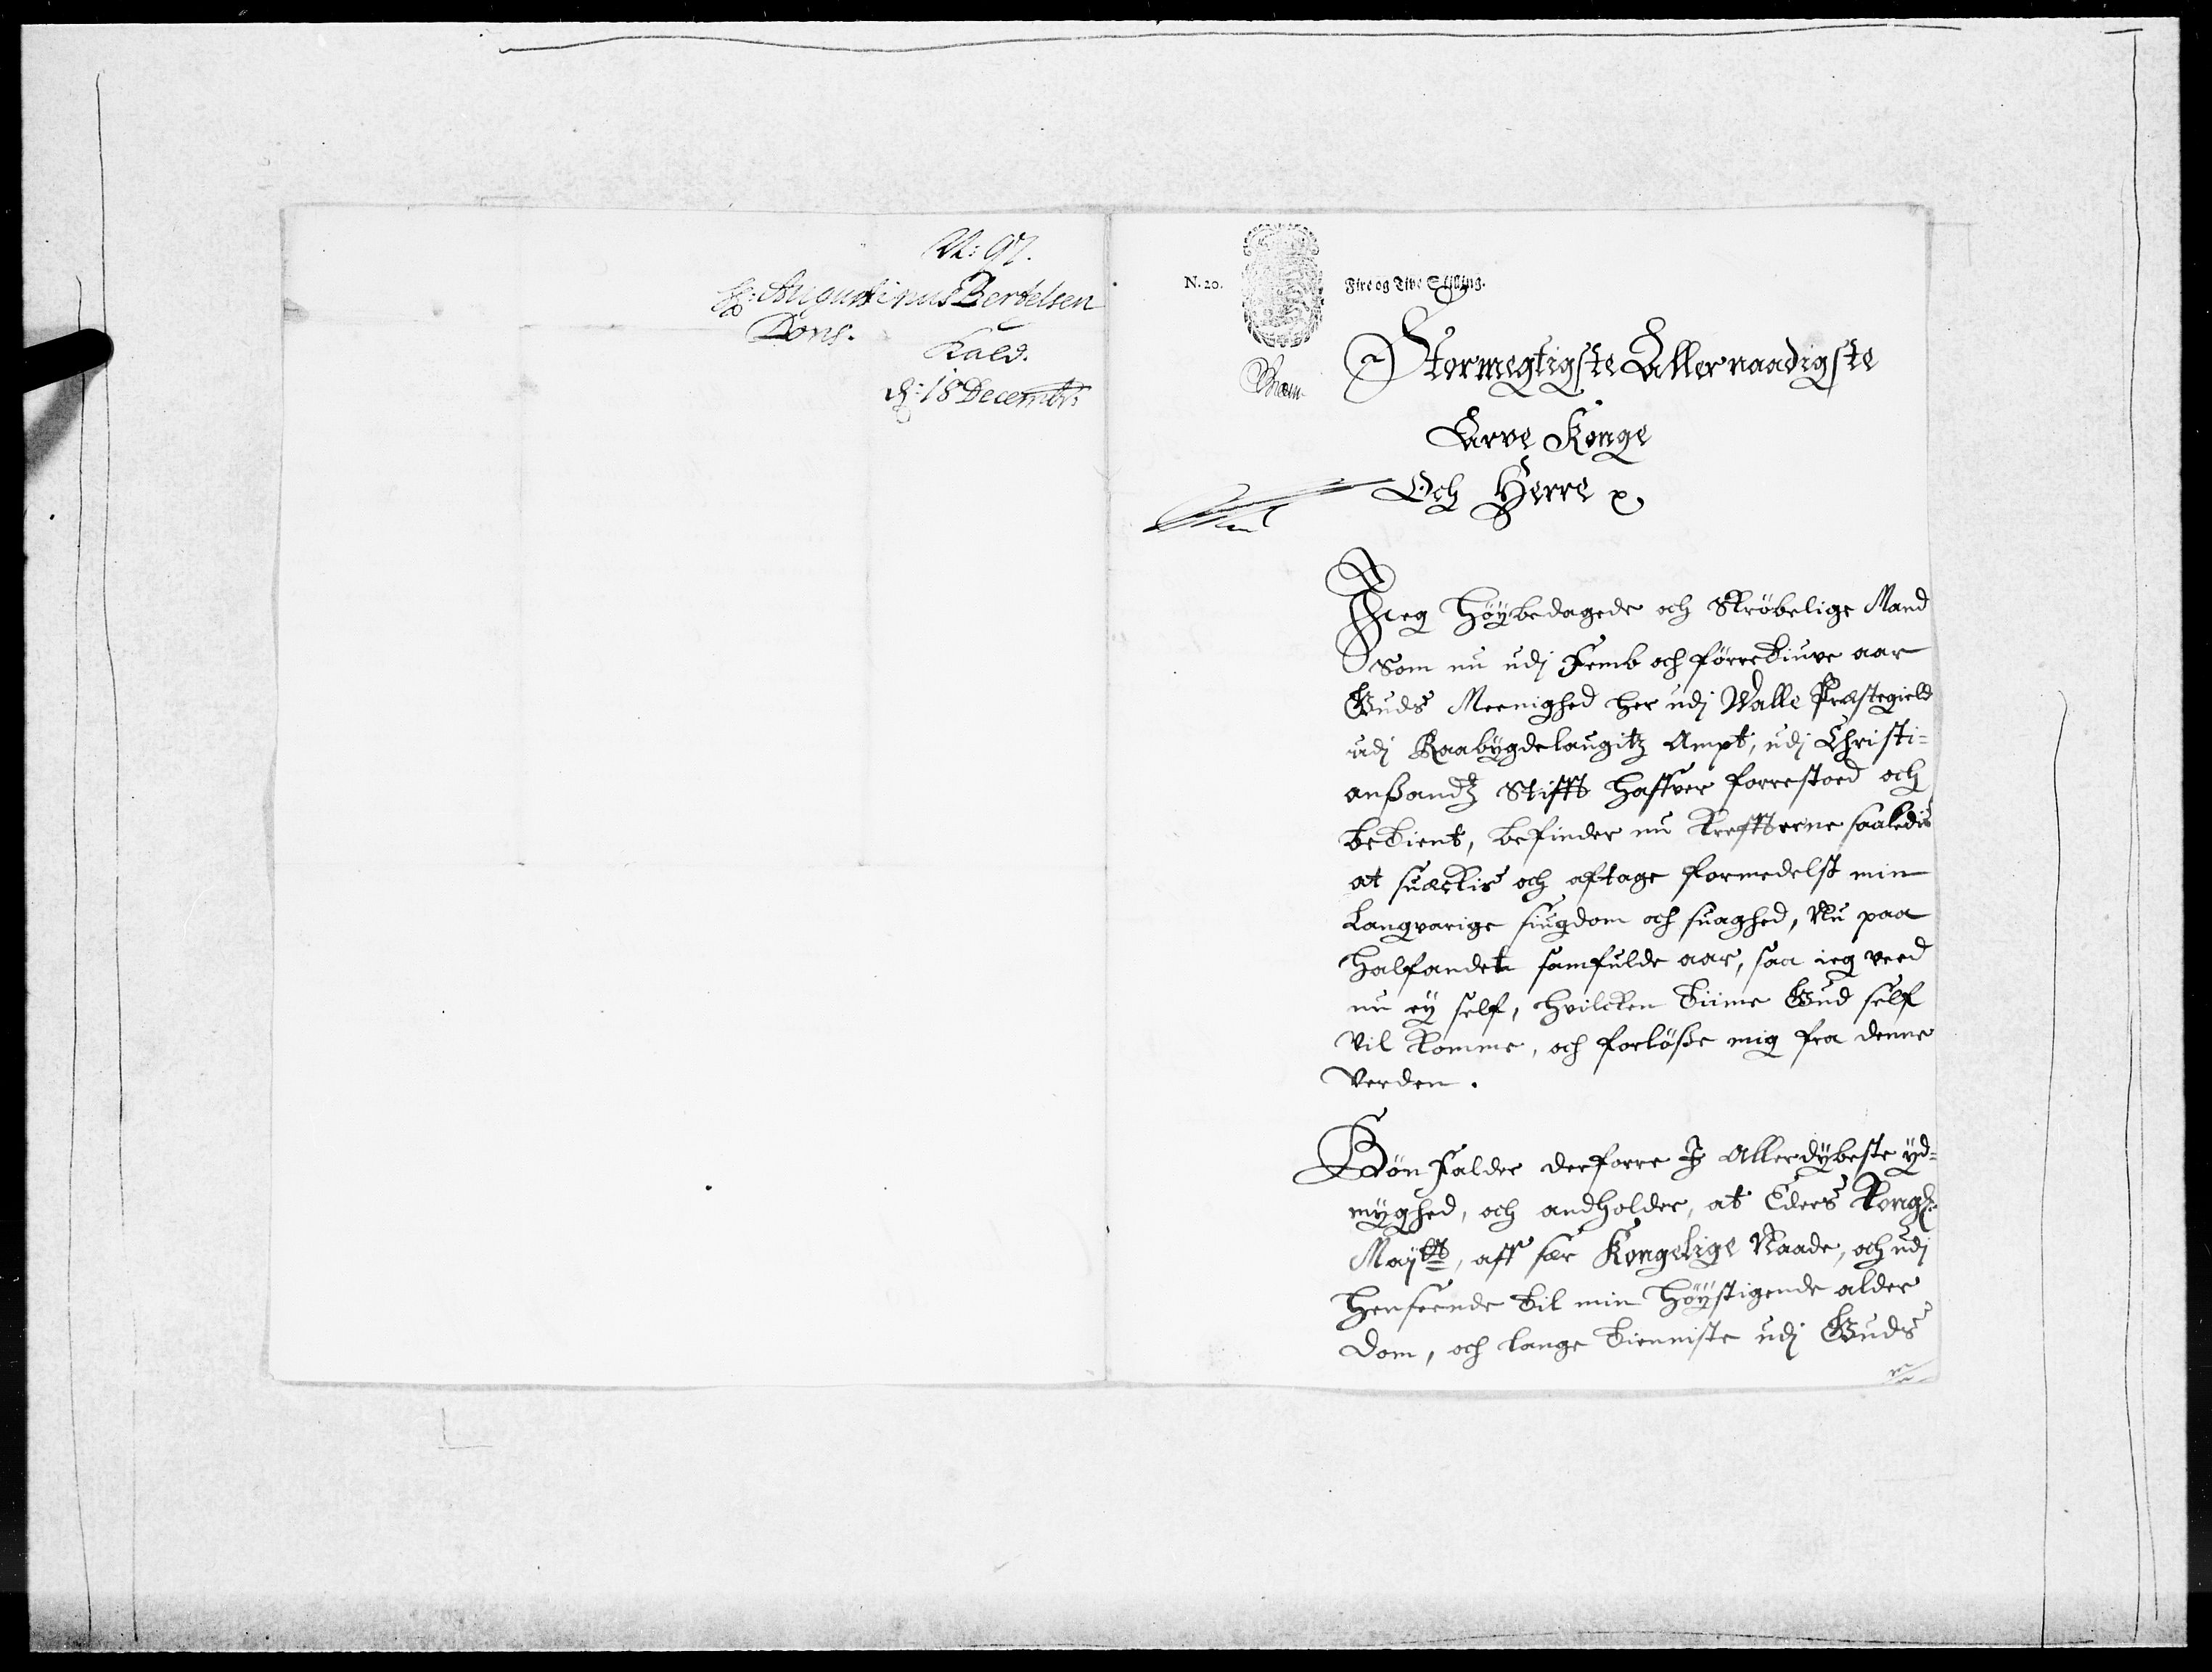 N: 97.
Hr: Augustinus Bertelsen
Dons.
Kald.
d: 18 Decembris
N. 20.
Fire og Tive Skilling.
Stormegtigste Allernaadigste
Arve Konge
Och Herre
Jeg Höÿbedagede och Skröbelige Mand
Som nu udj Femb och förretiuve aar
Guds Meenighed her udj Walle Præstegield
udj Raabÿgdelaugitz Ampt, udj Christi-
anßandtz Stifft haffver forrestoed och
betient, befinder nu Kreffterne saaledis
at suæckis och aftage formedelst min
Langvarige siugdom och suaghed, Nu paa
halfandet samfulde aar, saa ieg veed
nu eÿ self, hvilcken tiime Gud self
vil komme, och forlöße mig fra denne
Verden.
Bön Falder derforre I Allerdÿbeste ÿd-
mÿghed, och andholder, at Eders Kongl:
Maÿtt, aff sær Kongelige Naade, och udj
henseende til min höÿstigende alder
dom, och lange tienniste udj Guds